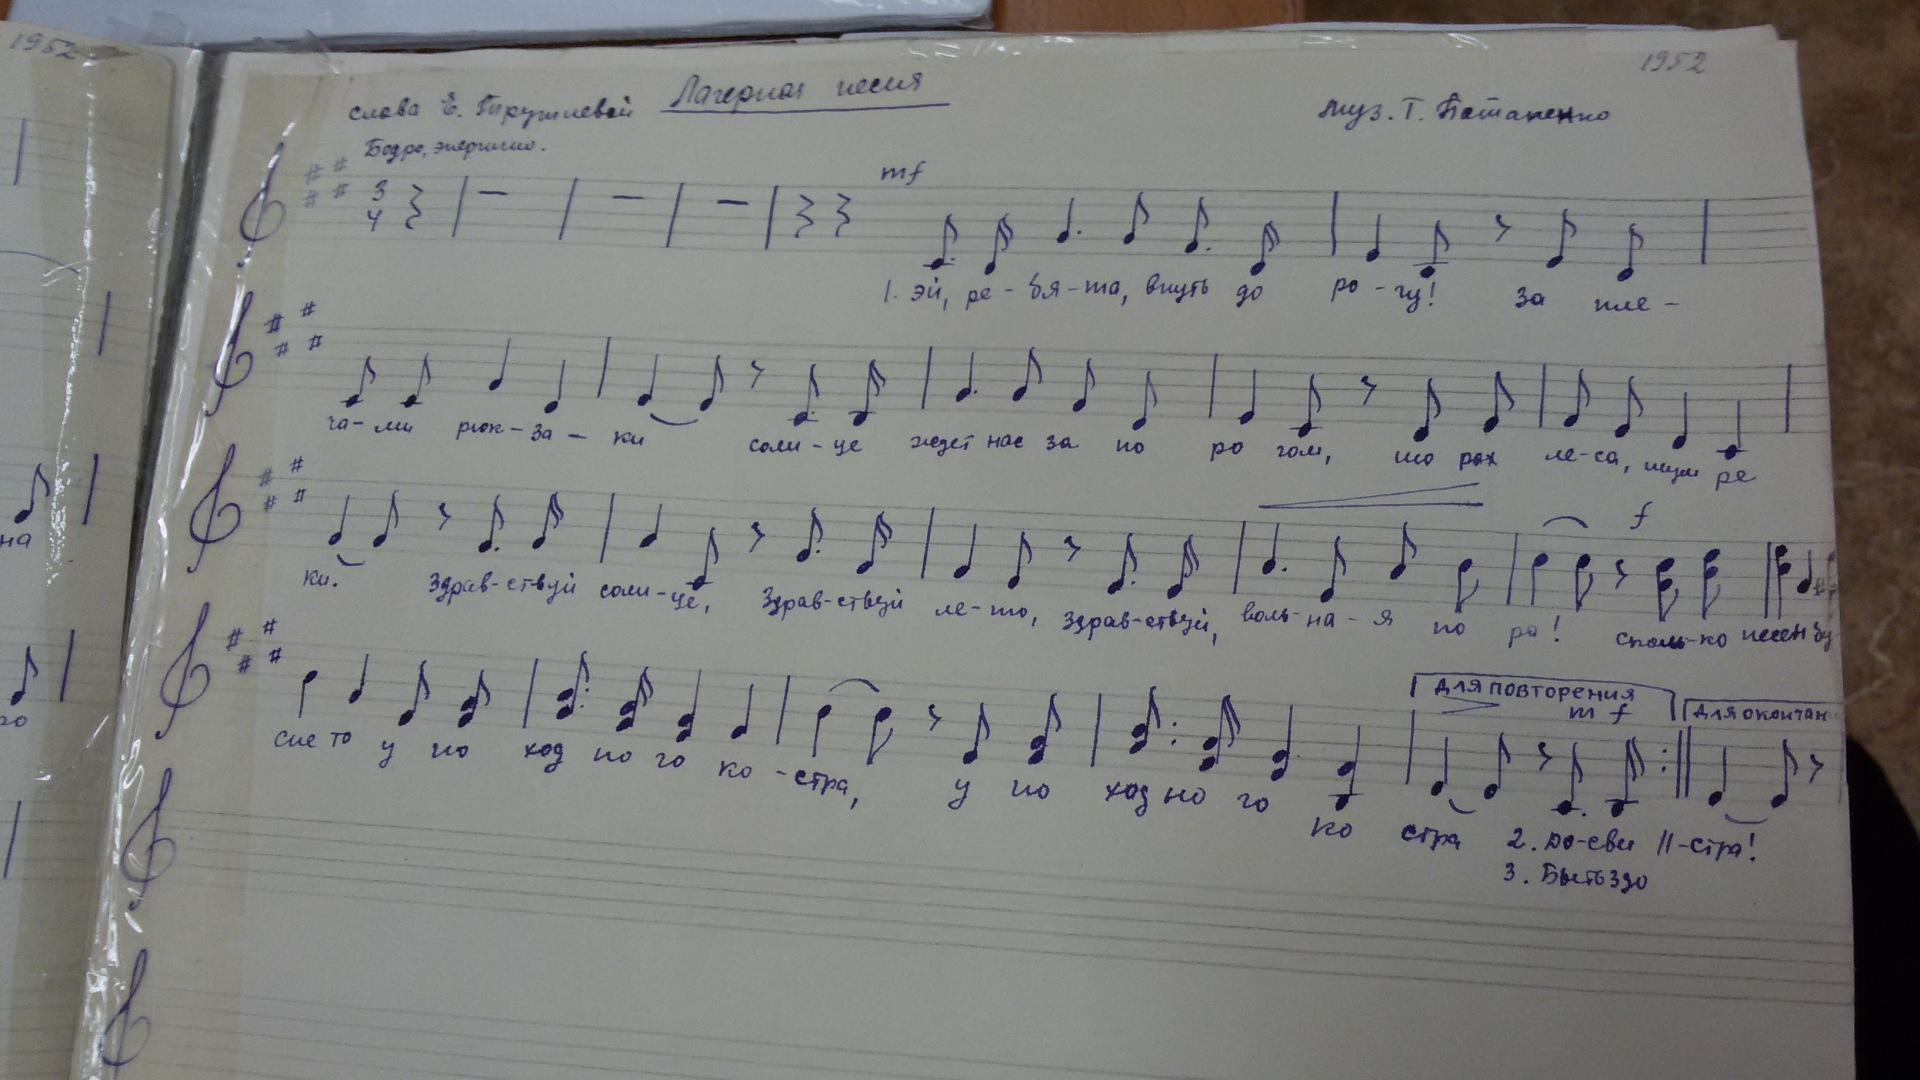 1952
1952
Лагерная песня
слова Е. Трутневой
муз. Г. Потапенко
Бодро, энергично.
3
4
mf
1. эй, ре - бя - та, впуть до ро - гу! за пле -
ча - ми рюк - за - ки солн - це ждет нас за по ро гом, шо рох ле - са, шум ре
f
ки. Здрав - ствуй солн - це, Здрав - ствуй ле - то, Здрав - ствуй, воль - на - я по ра! Сколь - ко песен
для повторения
mf
для окончан
у по ход но го ко - стра, у по ход но го ко стра 2. по-сви ||-стра!
3. Быть здо
на
го